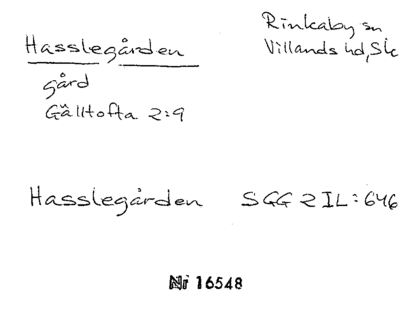 Hasslegården
Rinkaby sn
Villands hd, Sk
gård
Gälltofta 2:9
Hasslegården SGG 2 IL:646
Nr 16548